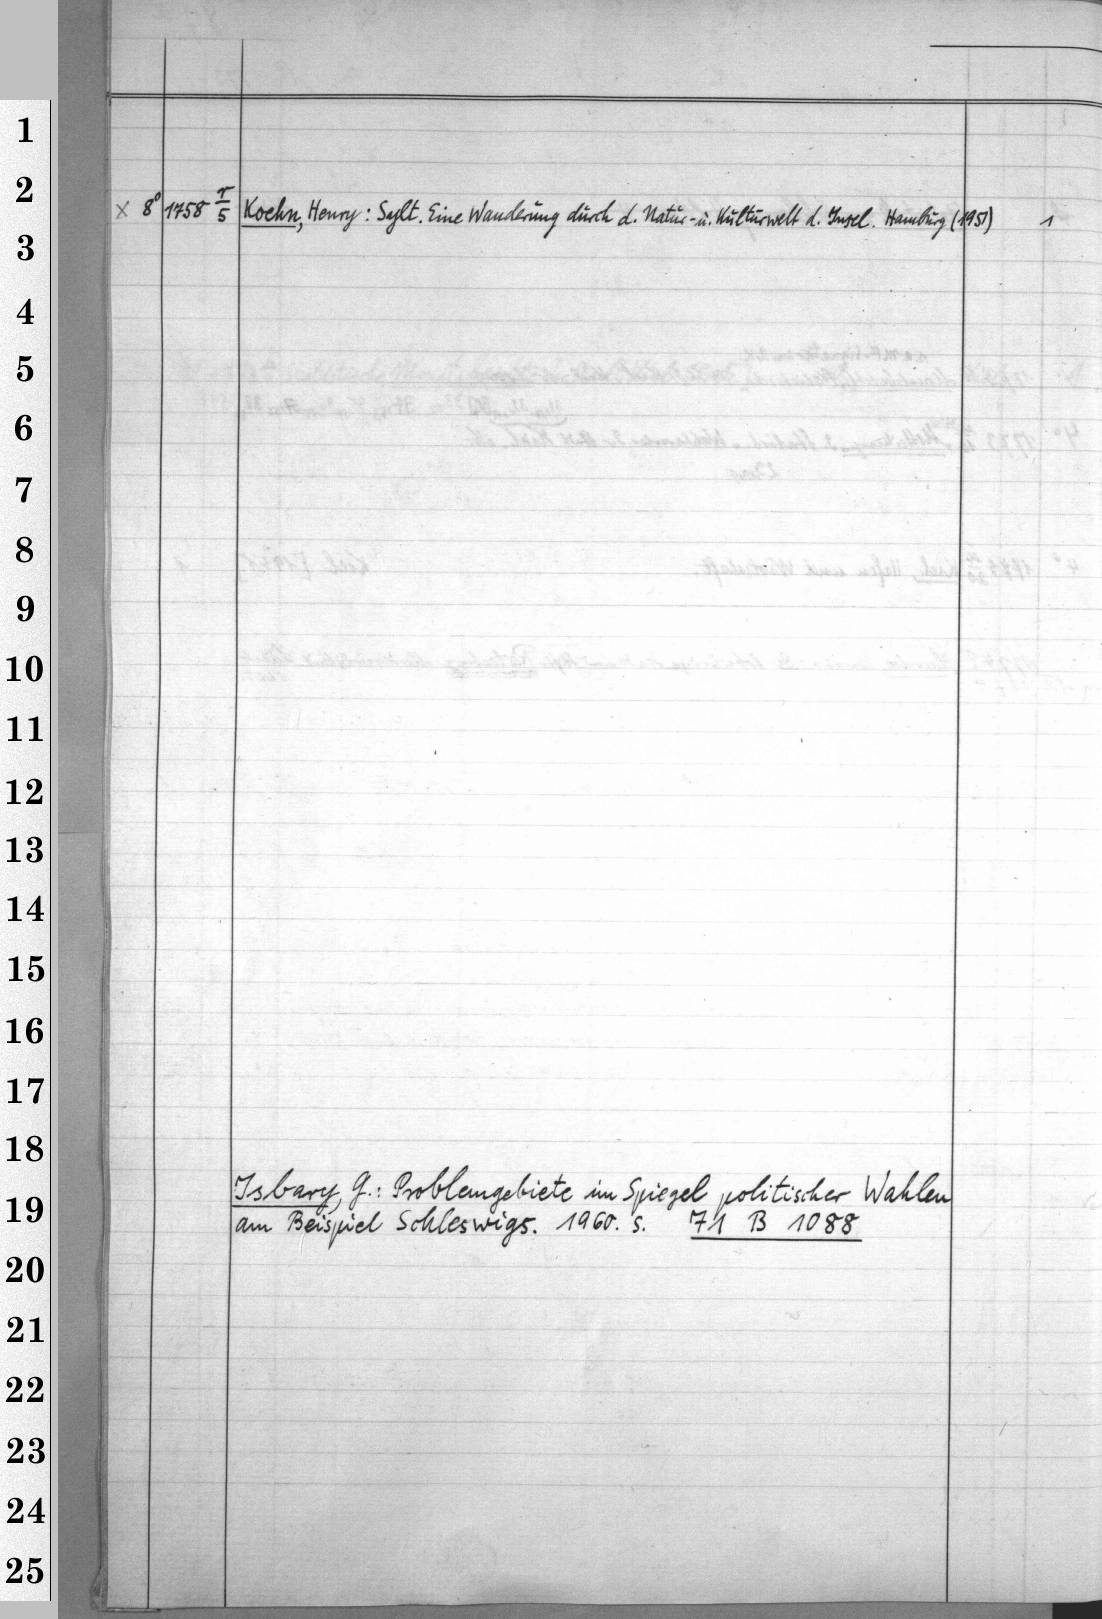 1
2
x 8° 1758 r/5 Koehn, Henry: Sylt. Eine Wanderung durch d. Natur- u. Kulturwelt d. Insel. Hamburg (1951) 1
3
4
5
6
7
8
9
10
11
12
13
14
15
16
17
18
Isbary, G.: Problemgebiete im Spiegel politischer Wahlen
19
am Beispiel Schleswigs. 1960. s. 71 B 1088
20
21
22
23
24
25